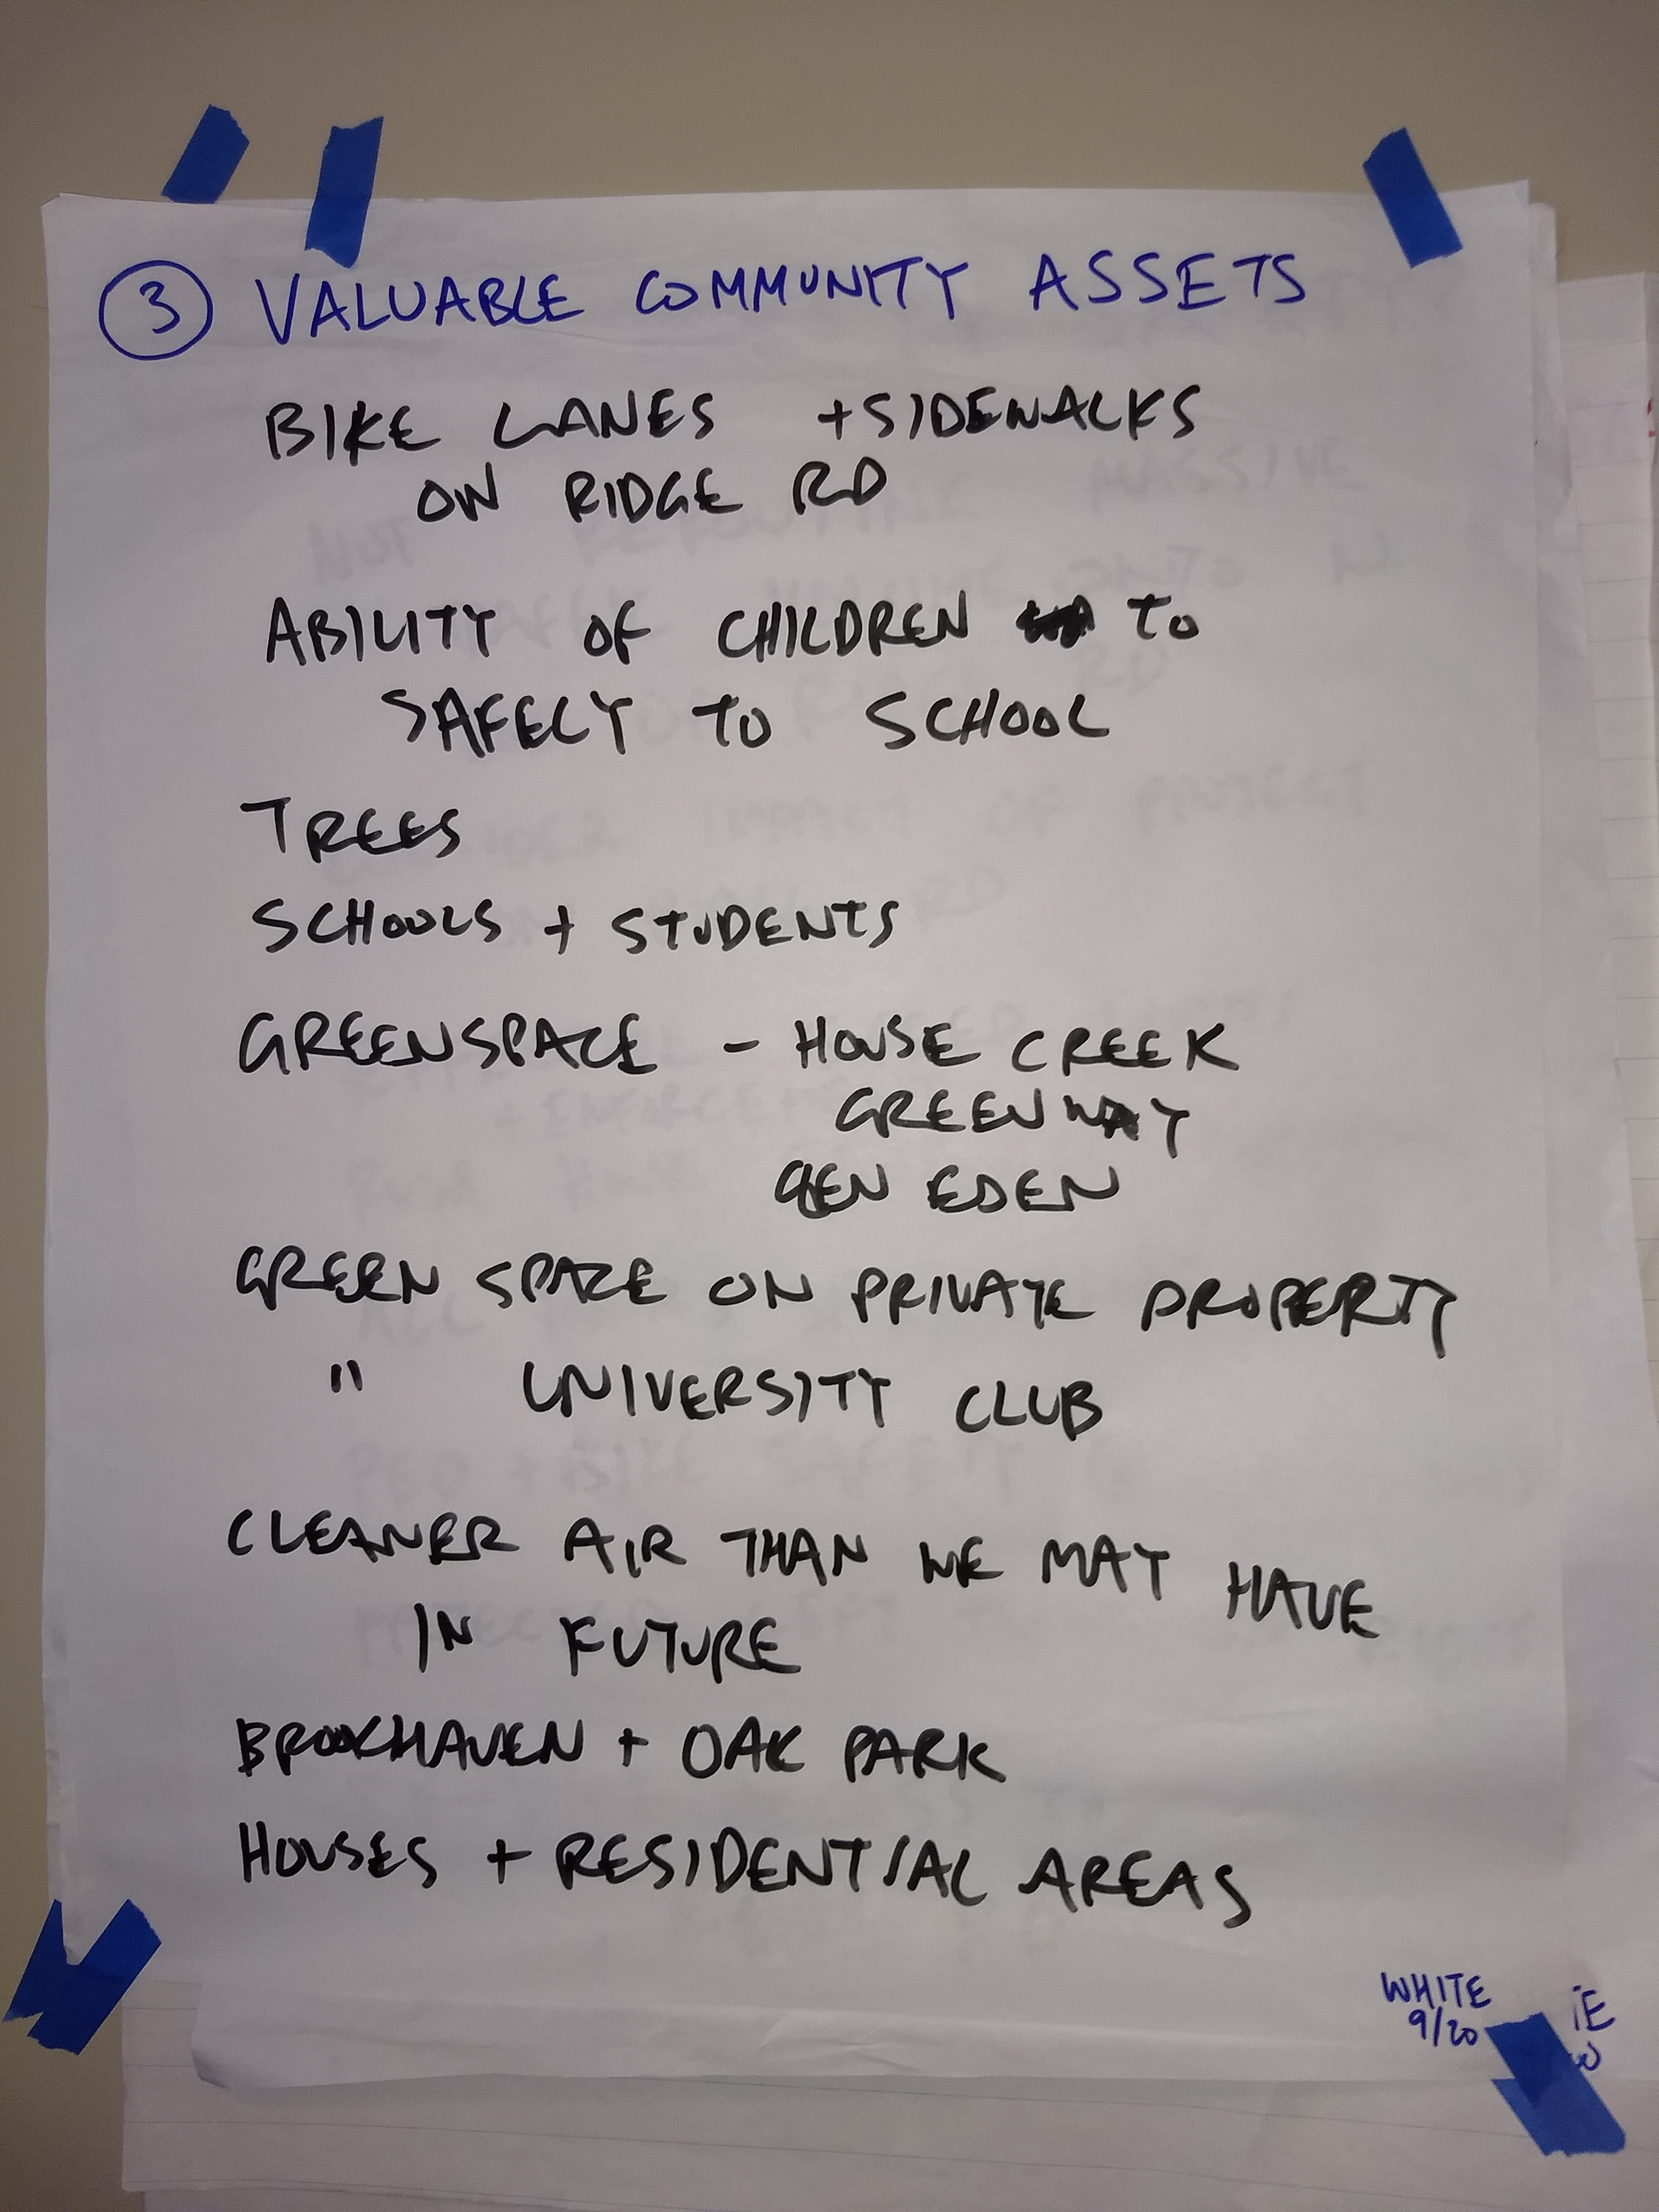 3 VALUABLE COMMUNITY ASSETS
BIKE LANES + SIDEWALKS
ON RIDGE RD
ABILITY OF CHILDREN TO
SAFELY TO SCHOOL
TREES
SCHOOLS + STUDENTS
GREENSPACE - HOUSE CREEK
GREENWAY
GEN EDEN
GREEN SPACE ON PRIVATE PROPERTY
" UNIVERSITY CLUB
CLEANER AIR THAN WE MAY HAVE
IN FUTURE
BROOKHAVEN + OAK PARK
HOUSES + RESIDENTIAL AREAS
WHITE
9/20